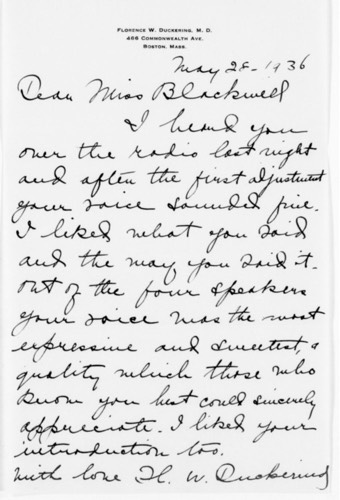 FLORENCE W. DUCKERING, M. D.
466 COMMONWEALTH AVE.
BOSTON, MASS.
May 28 - 1936
Dear Miss Blackwell
I heard you
over the radio last night
and after the first adjustment
your voice sounded fine.
I liked what you said
and the way you said it.
Out of the four speakers
your voice was the most
expressive and sweetest, a
quality which those who
know you best could sincerely
appreciate. I liked your
introduction too.
With love F. W. Duckering